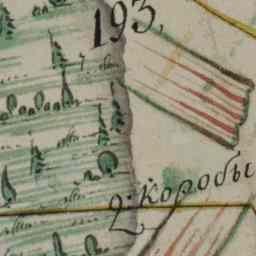 193,
2. коробы